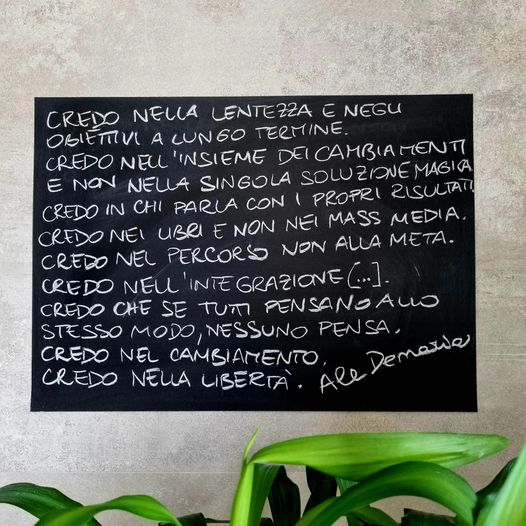 CREDO NELLA LENTEZZA E NEGLI
OBIETTIVI A LUNGO TERMINE.
CREDO NELL'INSIEME DEI CAMBIAMENTI
E NON NELLA SINGOLA SOLUZIONE MAGICA.
CREDO IN CHI PARLA CON I PROPRI RISULTATI.
CREDO NEI LIBRI E NON NEI MASS MEDIA.
CREDO NEL PERCORSO NON ALLA META.
CREDO NELL'INTEGRAZIONE [...].
CREDO CHE SE TUTTI PENSANO ALLO
STESSO MODO, NESSUNO PENSA.
CREDO NEL CAMBIAMENTO.
CREDO NELLA LIBERTÀ. Ale Demaria